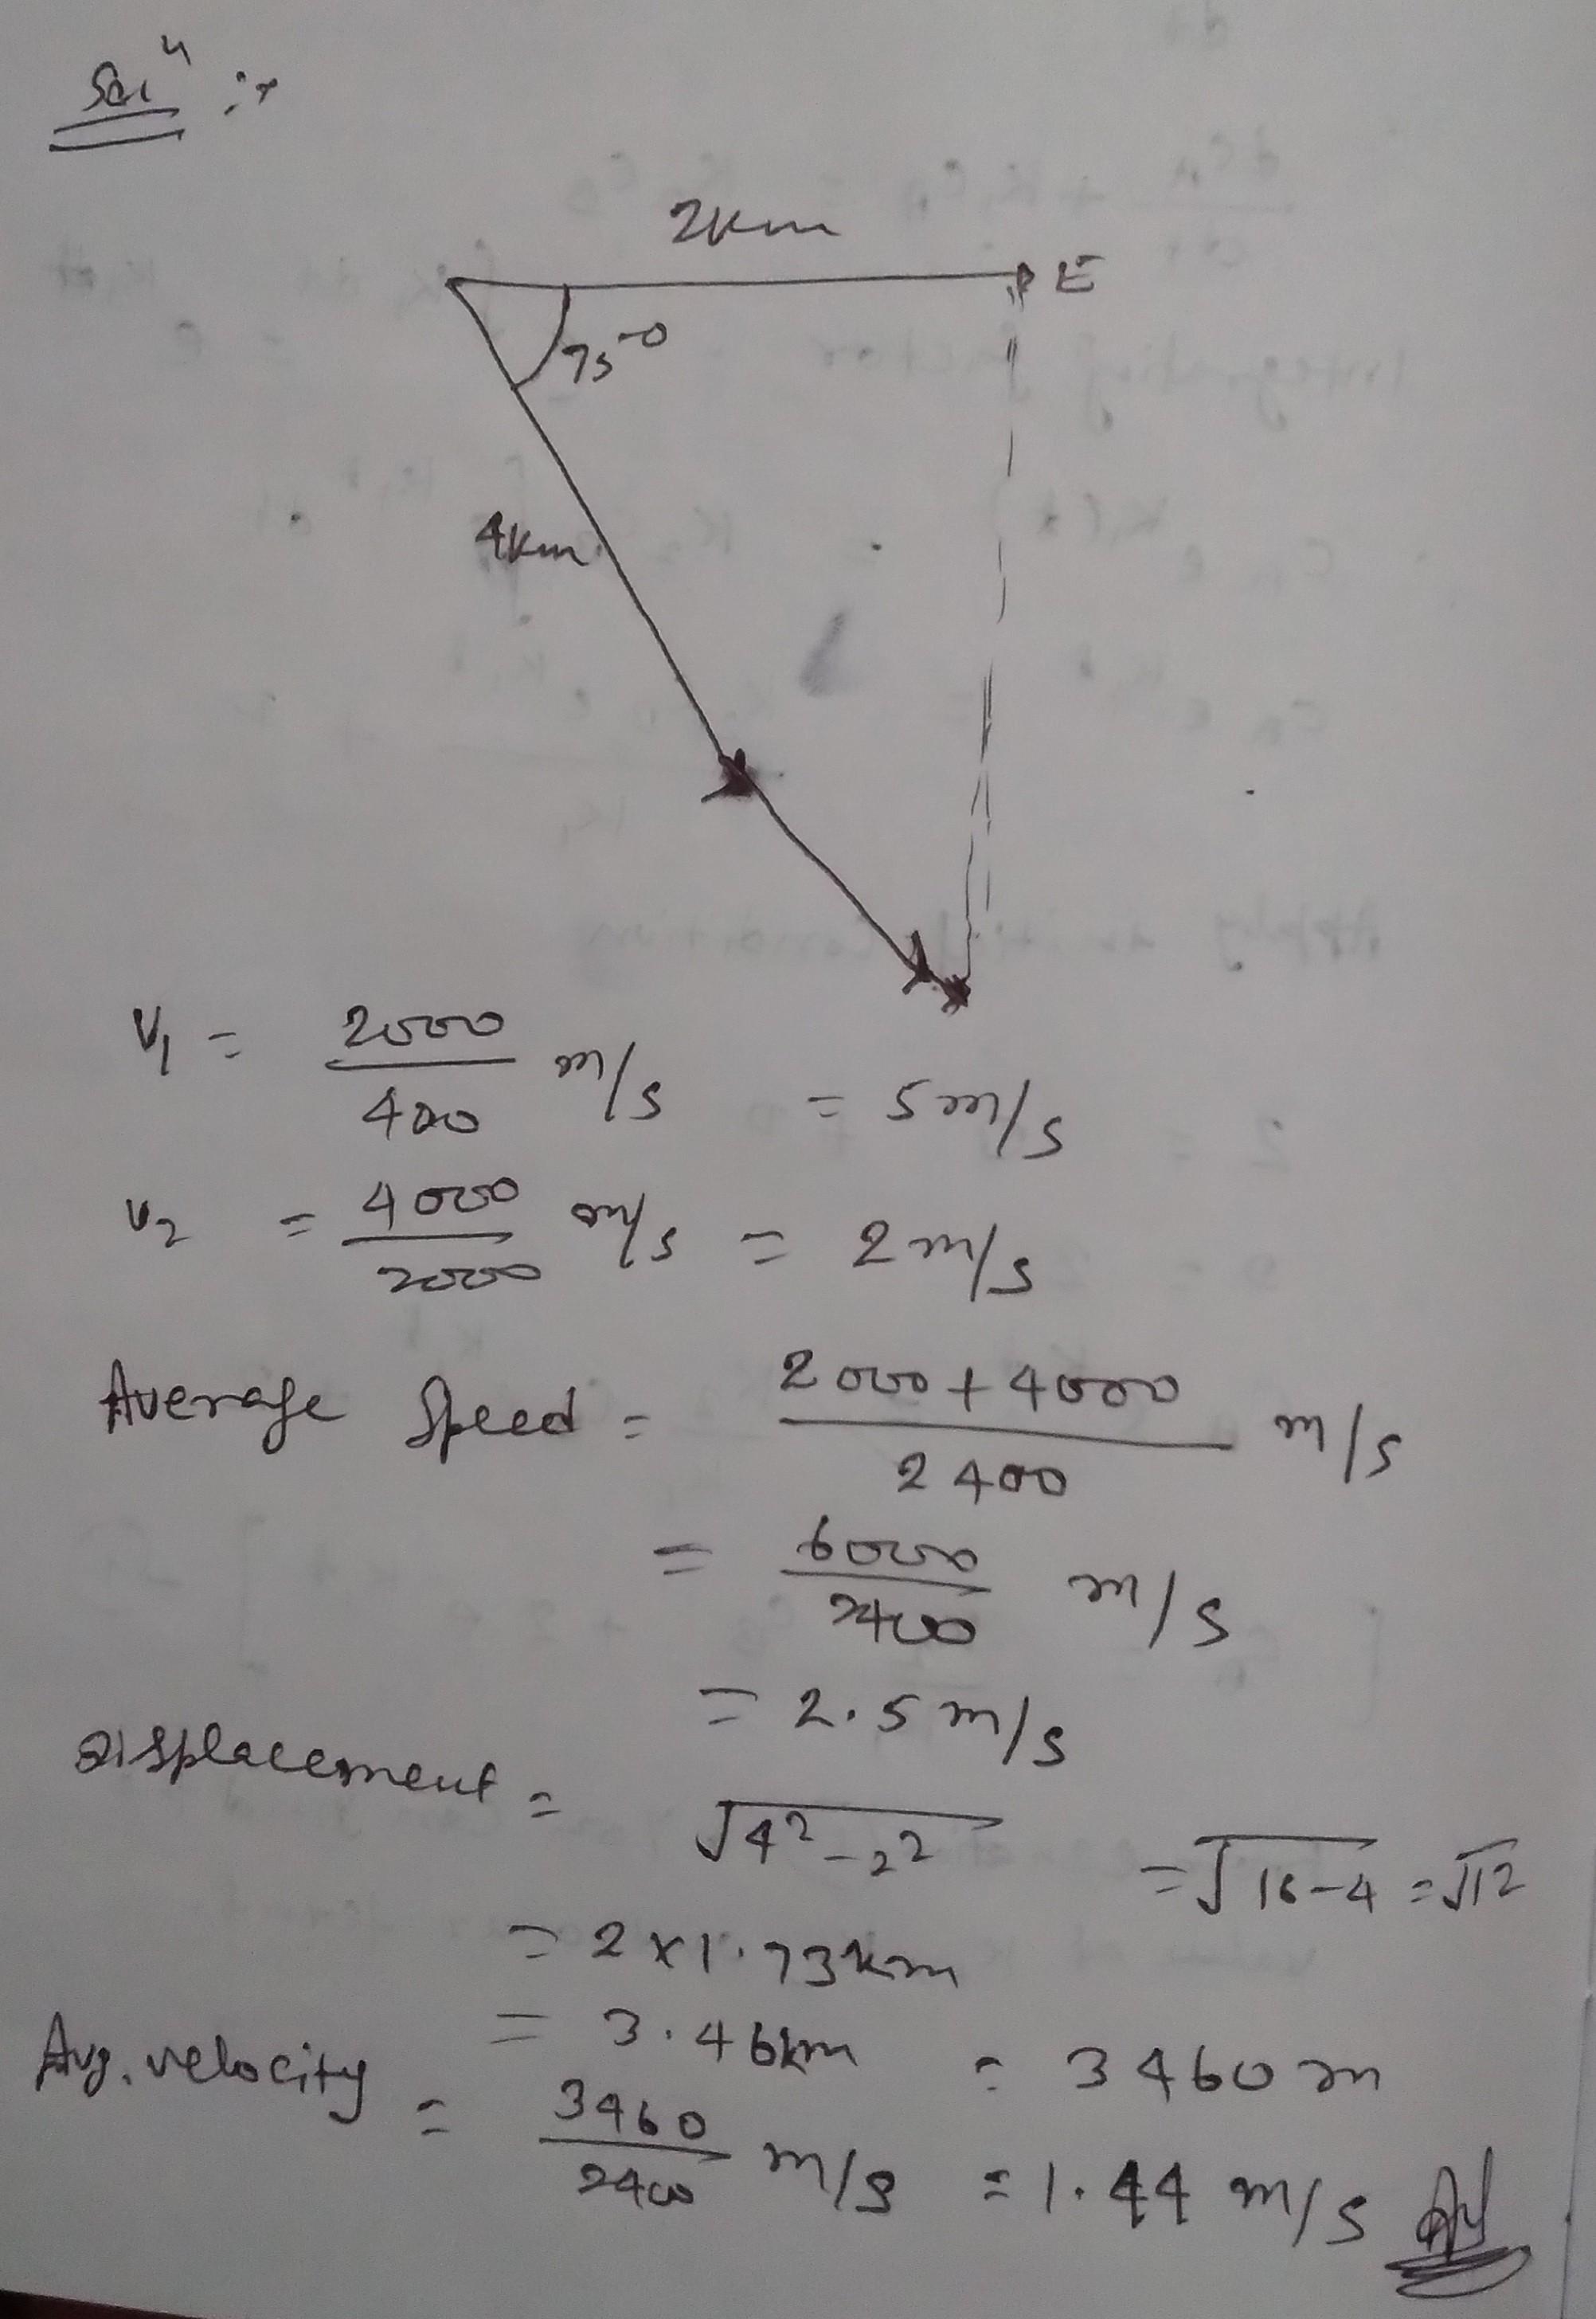 Solⁿ :-
2km
E
75°
4km
V₁ = 2000/400 m/s = 5 m/s
V₂ = 4000/2000 m/s = 2 m/s
Average Speed = 2000+4000/2400 m/s
= 6000/2400 m/s
= 2.5 m/s
Displacement = √4²-2² = √16-4 = √12
= 2×1.73km
= 3.46km = 3460 m
Avg. velocity = 3460/2400 m/s = 1.44 m/s